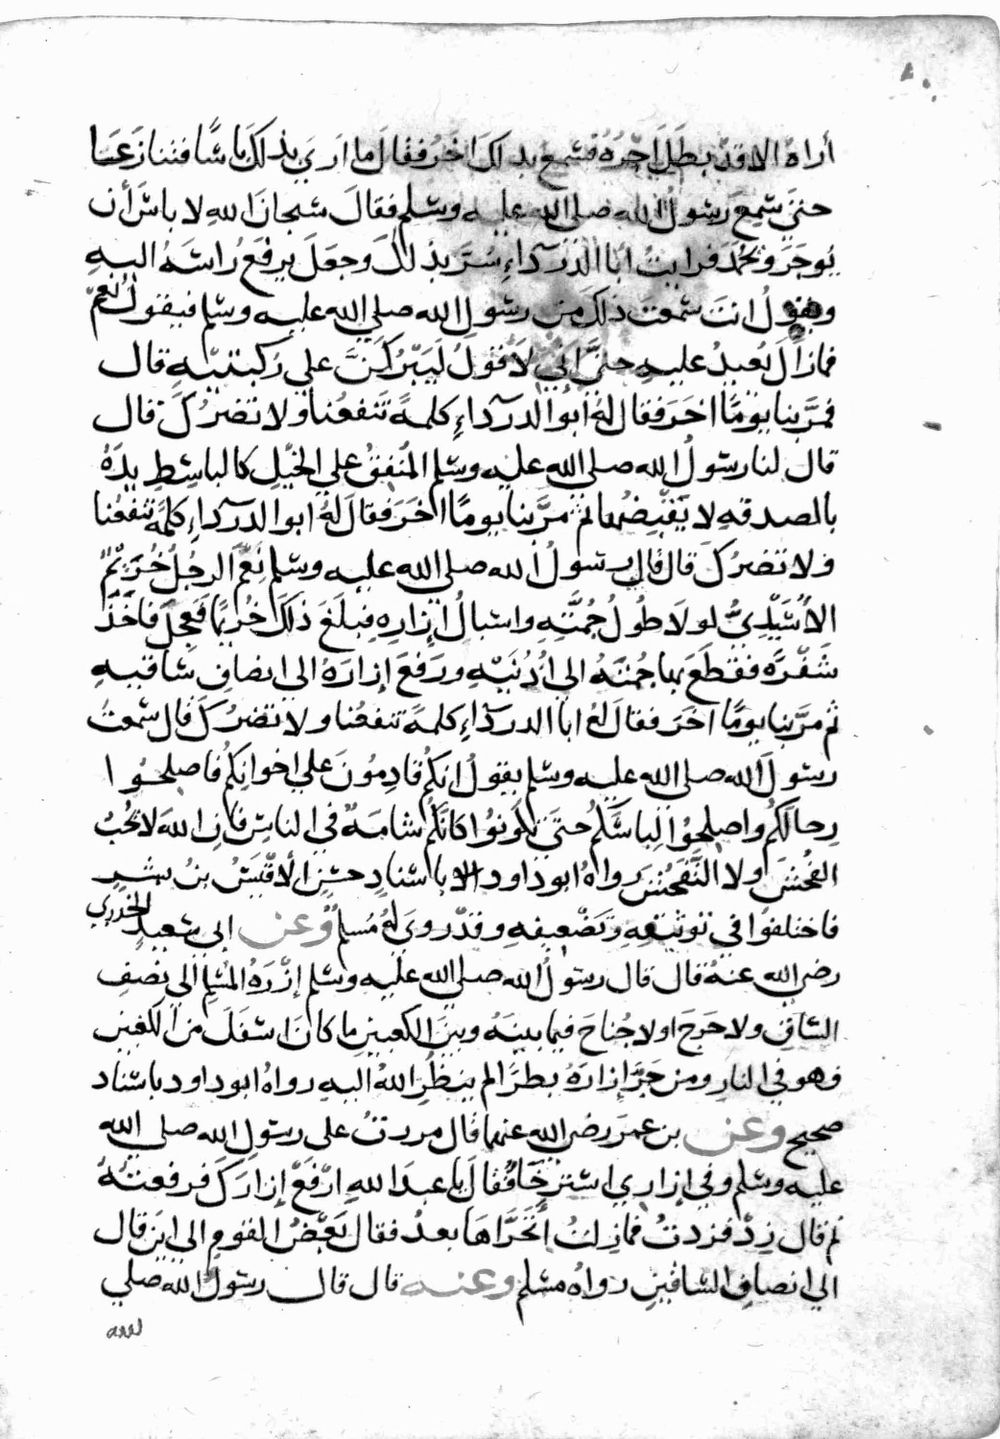 ٨٠
أراه الا قد بطل اجره فسمع بذلك اخر فقال ما اري بذلك باسًا فتنازعا
حتى سمع رسول الله صلي الله عليه وسلم فقال سبحان الله لا باس أن
يوجر ويحمد فرايت ابا الدرداء سر بذلك وجعل يرفع راسه اليه
ويقول انت سمعت ذلك من رسول الله صلي الله عليه وسلم فيقول نعم
فمازال يعيد عليه حتى اني لاقول ليبركن علي ركبتيه قال
فمر بنا يومًا اخر فقال له ابو الدرداء كلمةً تنفعنا ولا تضرك قال
قال لنا رسول الله صلي الله عليه وسلم المنفق علي الخيل كالباسط يده
بالصدقه لا يقبضها ثم مر بنا يومًا اخر فقال له ابو الدرداء كلمةً تنفعنا
ولا تضرك قال قال رسول الله صلي الله عليه وسلم نعم الرجل خريم
الأسيدي لولا طول جمته واسبال إزاره فبلغ ذلك خريمًا فعجل فاخذ
شفرةً فقطع بها جمته الي اذنيه ورفع إزاره الي انصاف ساقيه
ثم مر بنا يومًا اخر فقال له ابا الدرداء كلمةً تنفعنا ولا تضرك قال سمعت
رسول الله صلي الله عليه وسلم يقول انكم قادمون علي اخوانكم فاصلحوا
رحالكم واصلحوا لباسكم حتى تكونوا كانكم شامة في الناس فان الله لا يحب
الفحش ولا التفحش رواه ابو داود باسناد حسن الا قيس بن بشر
فاختلفوا في توثيقه وتضعيفه وقد روي له مسلم وعن ابي سعيد الخدري
رضي الله عنه قال قال رسول الله صلي الله عليه وسلم إزرة المسلم الي نصف
الساق ولا حرج او لا جناح فيما بينه وبين الكعبين ما كان اسفل من الكعبين
فهو في النار ومن جر إزاره بطرًا لم ينظر الله اليه رواه ابو داود باسناد
صحيح وعن بن عمر رضي الله عنهما قال مررت على رسول الله صلي الله
عليه وسلم وفي إزاري استرخا فقال يا عبد الله ارفع إزارك فرفعته
ثم قال زد فزدت فمازلت أتحراها بعد فقال بعض القوم الي اين قال
الي انصاف الساقين رواه مسلم وعنه قال قال رسول الله صلي
الله